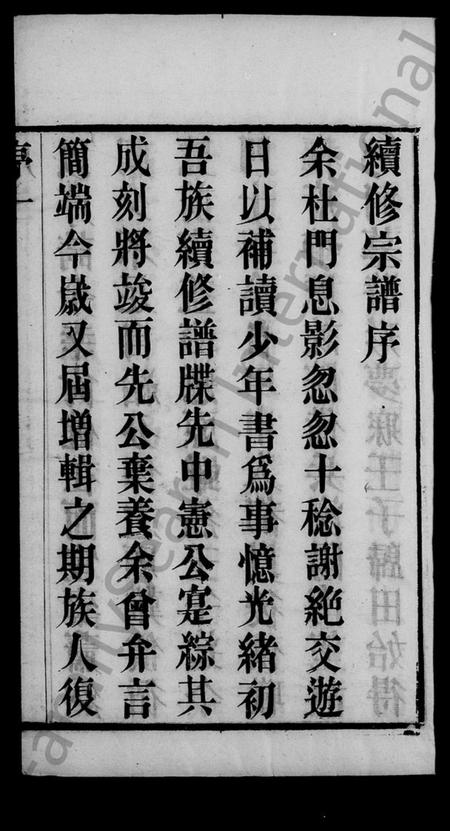 續修宗譜序
余杜門息影忽忽十稔謝絕交遊
日以補讀少年書爲事憶光緒初
吾族續修譜牒先中憲公寔綜其
成刻將竣而先公棄養余曾弁言
簡端今歲又屆增輯之期族人復
序一
FamilySearch International